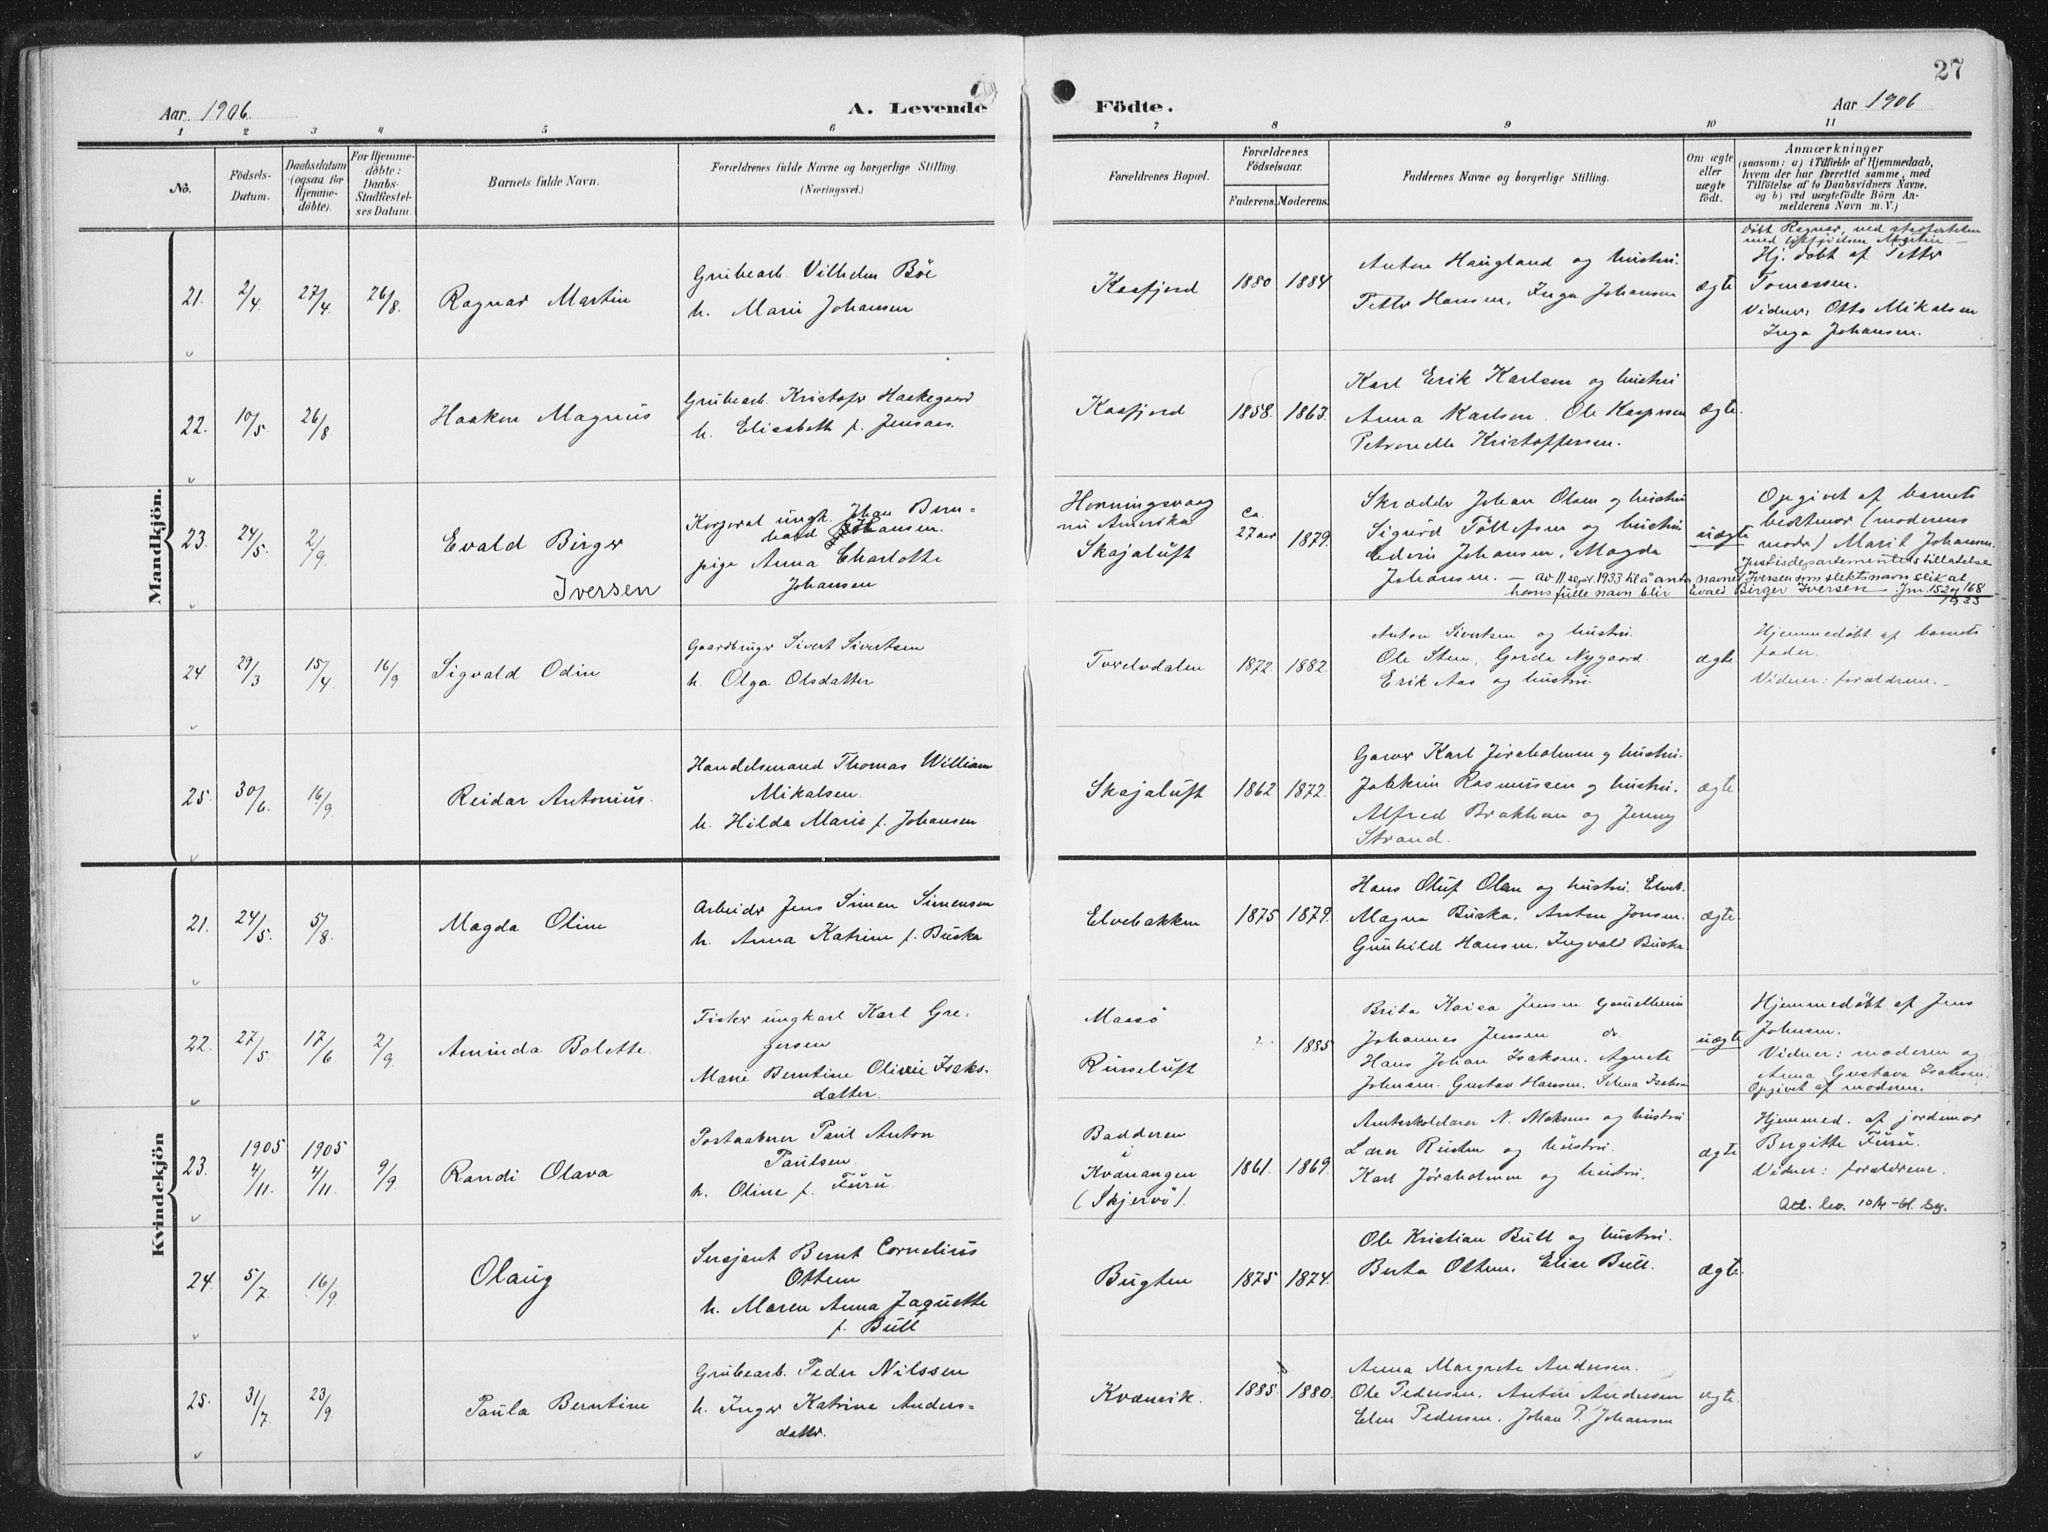 27
Aar 1906
A. Levende
Födte.
Aar 1906
1 2 3 4 5 6 7 8 9 10 11
No.
Födsels-
Datum.
Daabsdatum
(ogsaa for
Hjemme-
döbte).
For Hjemme-
döbte:
Daabs-
Stadfæstel-
ses Datum.
Barnets fulde Navn.
Forældrenes fulde Navne og borgerlige Stilling.
(Næringsvei.)
Forældrenes Bopæl.
Forældrenes
Födselsaar.
Faderens.
Moderens.
Faddernes Navne og borgerlige Stilling.
Om ægte
eller
uægte
födt.
Anmærkninger
(saasom: a) i Tilfælde af Hjemmedaab,
hvem der har forrettet samme, med
Tilföielse af to Daabsvidners Navne,
og b) ved uægtefödte Börn An-
melderens Navn m. V.)
Mandkjön.
21. 2/4 27/4 26/8. Ragnar Martin
Grubearb. Vilhelm Böe
h. Marie Johansen
Kaafjord 1880 1884
Anton Haugland og hustru.
Petter Hansen, Inga Johansen
ægte
Döbt Ragnar, ved stadfæstelsen
med tilföielsen Martin. –
Hj. döbt af Petter
Tomassen.
Vidner: Otto Mikalsen
Inga Johansen.
22. 10/5 26/8 Haakon Magnus
Grubearb. Kristofer Haakegaard
h. Elisabeth f. Jensaas.
Kaafjord 1858. 1863.
Karl Erik Karlsen og hustru
Anna Karlsen. Ole Kaspersen
Petronelle Kristoffersen.
ægte.
23. 24/5. 2/9. Evald Birger
Iversen
Korporal ungk. Johan Bern-
hard Johansen.
pige Anna Charlotte
Johansen
Honningsvaag
nu Amerika
Skajaluft
ca.
27 aar 1879.
Skrædder Johan Olsen og hustru
Sigurd Tollefsen og hustru
Edvin Johansen, Magda
Johansen. – av 11 sept. 1933 til å anta navnet Iversen som slektsnavn slik at
hans fulle navn blir Evald Birger Iversen. Jnr. 152 og 168
1933
uægte
Opgivet af barnets
bestemor (moderens
moder) Marit Johansen.
Justisdepartementets tillatelse
24. 29/3 15/4 16/9 Sigvald Odin
Gaardbruger Sivert Sivertsen
h. Olga Olsdatter
Tverelvdalen 1872. 1882.
Anton Sivertsen og hustru.
Ole Sten, Gerda Nygaard.
Erik Aas og hustru.
ægte
Hjemmedöbt af barnets
fader.
Vidner: forældrene. –
25. 30/6. 16/9. Reidar Antonius.
Handelsmand Thomas William
Mikalsen.
h. Hilda Marie f. Johansen
Skajaluft 1862 1872.
Garver Karl Jöraholmen og hustru.
Joakim Rasmussen og hustru.
Alfred Brakhan og Jenny
Strand.
ægte
Kvindekjön
21. 24/5. 5/8. Magda Oline
Arbeider Jens Simon Simonsen
h. Anna Katrine f. Buska
Elvebakken 1875 1879.
Hans Oluf Olsen og hustru. Elveb.
Magna Buska. Anton Jensen.
Gunhild Hansen, Ingvald Buska
ægte
22. 27/5. 17/6 2/9. Aminda Bolette.
Fisker ungkarl Karl Gre-
gersen
Marie Berntine Olivie Isaks-
datter.
Maasö
Russeluft
? 1885
Brita Kaisa Jensen
Johannes Jensen do.
Hans Johan Isaksen. Agnete
Johnsen. Gustav Hansen. Selma Isaksen
uægte
Hjemmedöbt af Jens
Johnsen.
Vidner: moderen og
Anna Gustava Isaksen.
Opgivet af moderen.
23. 1905 4/11. 1905 4/11. 9/9. Randi Olava
Postaabner Paul Anton
Paulsen.
h. Oline f. Furu.
Badderen
i
Kvænangen
(Skjervö).
1861. 1869.
Amtskolelærer N. Moksnes og hustru
Lærer Rusten og hustru.
Karl Jöraholmen og hustru.
ægte
Hjemmed. af jordemor
Bergitte Furu.
Vidner: forældrene.
24. 5/7 16/9. Olaug
Sersjent Bernt Cornelius
Ottem
h. Maren Anna Jaquette
f. Bull
Bugten 1875 1874.
Ole Kristian Bull og hustru.
Berta Ottem. Elise Bull.
ægte.
25. 31/7. 23/9. Paula Berntine
Grubearb. Peder Nilssen
h. Inger Katrine Anders-
datter.
Kvænvik. 1885. 1880.
Anna Margrete Andersen.
Ole Pedersen. Antin Andersen
Elen Pedersen. Johan P. Johansen
ægte.